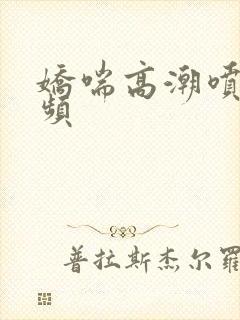 嬌喘高潮噴
頻
普拉斯杰尔羅